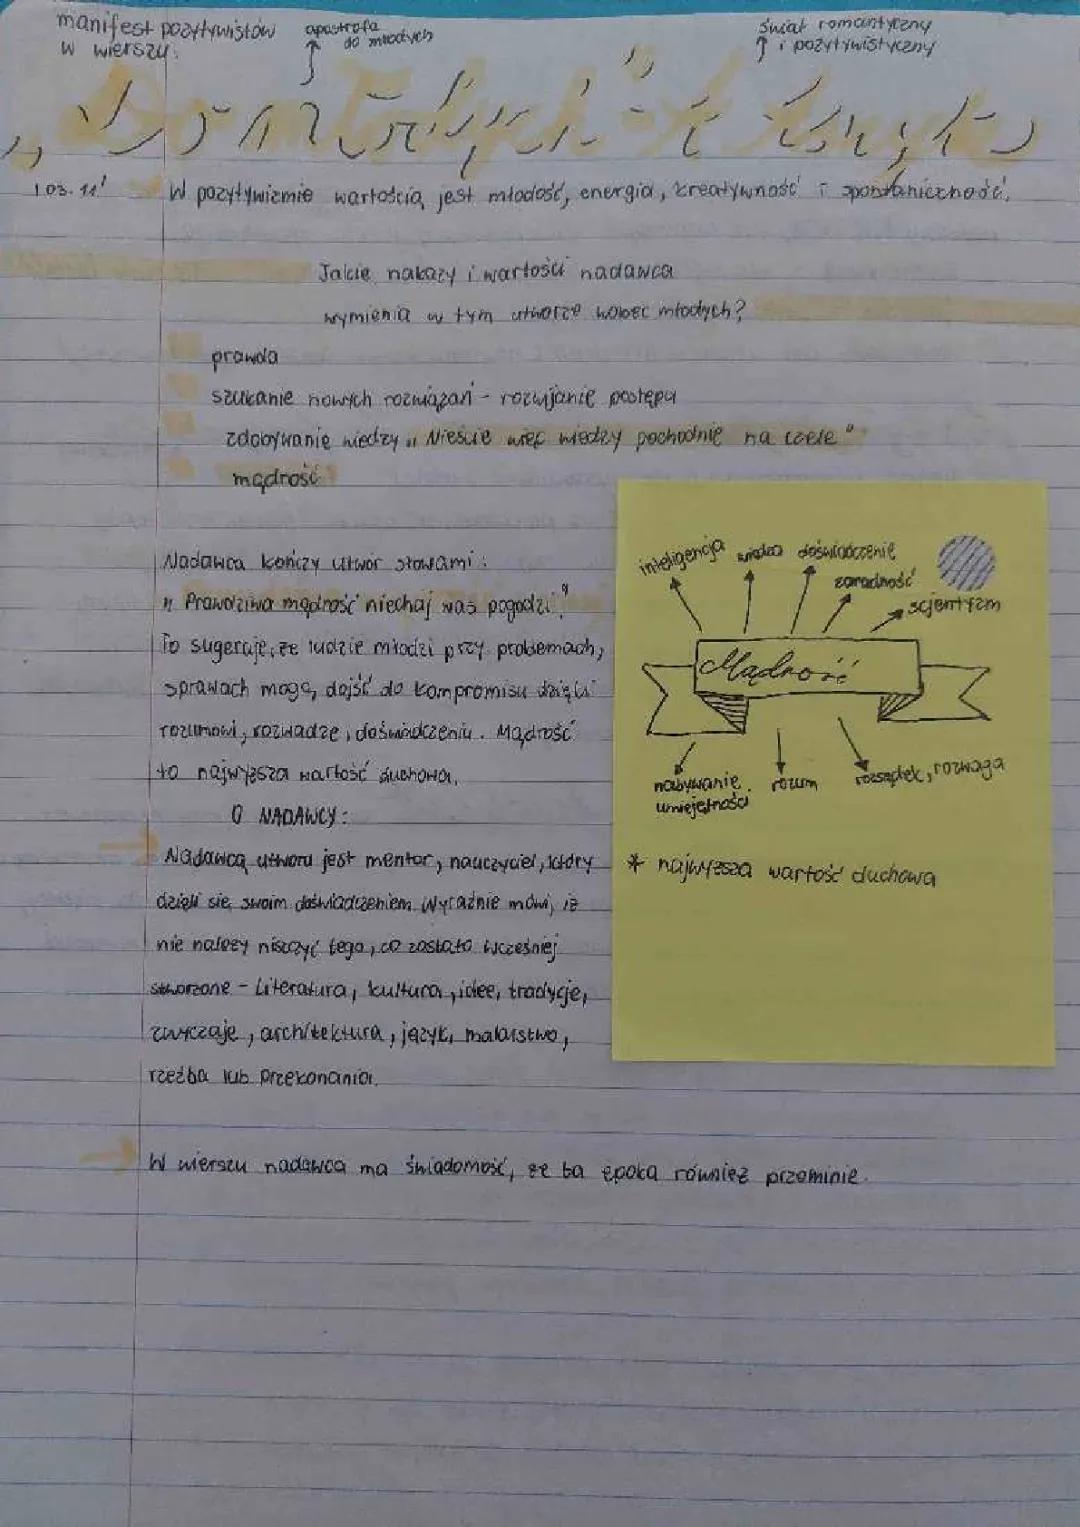 manifest pozytywistów
w wierszu.
apostrofa
do młodych
świat romantyczny
i pozytywistyczny
„Do Młodych" A. Asnyk
103. 11'
W pozytywizmie wartością jest młodość, energia, kreatywność i spontaniczność.
Jakie nakazy i wartości nadawca
wymienia w tym utworze wobec młodych?
prawda
szukanie nowych rozwiązań - rozwijanie postępu
zdobywanie wiedzy „Nieście więc wiedzy pochodnię na czele"
mądrość
Nadawca kończy utwór słowami:
„Prawdziwa mądrość niechaj was pogodzi"
To sugeruje, że ludzie młodzi przy problemach,
sprawach mogą dojść do kompromisu dzięki
rozumowi, rozwadze, doświadczeniu. Mądrość
to najwyższa wartość duchowa.
O NADAWCY:
Nadawcą utworu jest mentor, nauczyciel, który
dzieli się swoim doświadczeniem. Wyraźnie mówi, iż
nie należy niszczyć tego, co zostało wcześniej
stworzone - literatura, kultura, idee, tradycje,
zwyczaje, architektura, język, malarstwo,
rzeźba lub przekonania.
W wierszu nadawca ma świadomość, że ta epoka również przeminie.
inteligencja
wiedza
doświadczenie
zaradność
scjentyzm
Mądrość
nabywanie
umiejętności
rozum
rozsądek, rozwaga
* najwyższa wartość duchowa